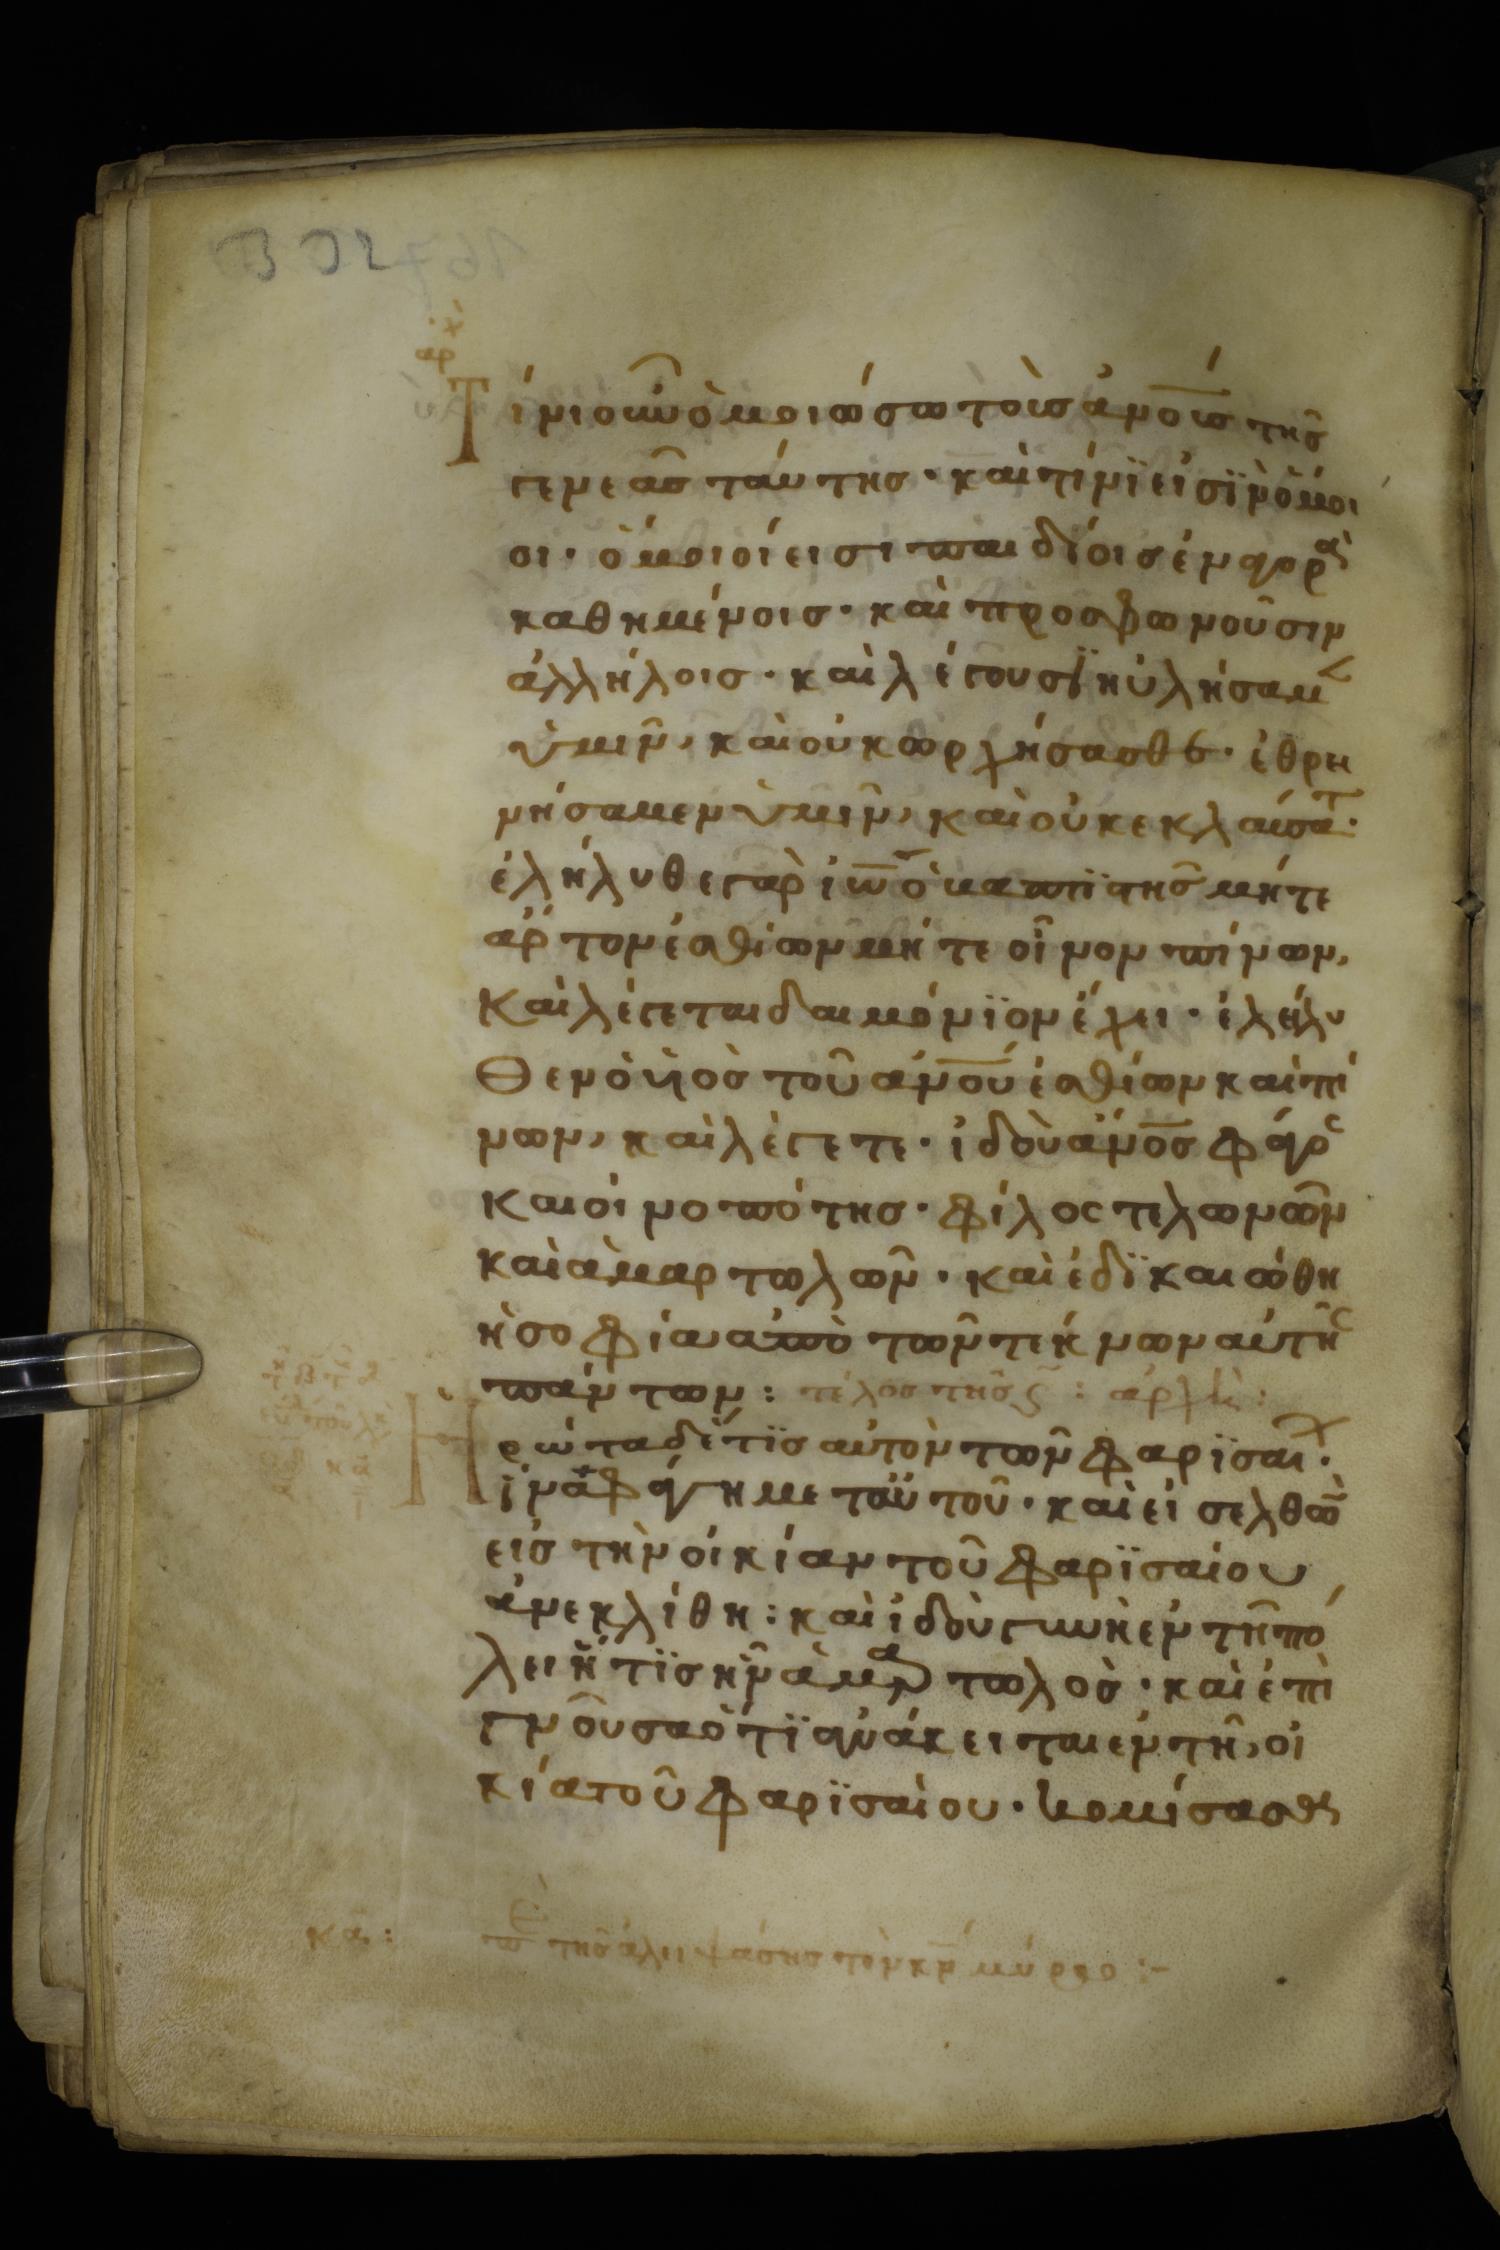 ἀρχ
Τίνι οὖν ὁμοιώσω τοὺς ἀνους τῆς
γενεᾶς ταύτης · καὶ τίνϊ εἰσῒν ὅμοι
οι · ὅμοιοί εισι παιδίοις ἐν αγορᾷ
καθημένοις · και προσφωνοῦσιν
ἀλλήλοις · καὶ λέγουσϊ ηὐλήσαμ
ὑμῖν, καὶ οὐκ ωρχήσασθε · ἐθρη
νήσαμεν ὑμῖν, καὶ οὐκ εκλαύσατ ·
ἐλήλυθε γὰρ ἰω ὁ βαπτϊστης μήτε
ἄρτον ἐσθίων μήτε οἶνον πίνων,
Καὶ λέγεται δαιμόνϊον ἔχει · ἐλήλυ
Θεν ὁ ὑϊὸς τοῦ ανου ἐσθίων καὶ πί
νων, καὶ λέγετε · ἰδοὺ ανος φάγος
Και οἰνοπότης · φίλος τελωνῶν
καὶ ἁμαρτωλῶν · καὶ ἐδϊκαιώθη
ἡ σοφία απὸ τῶν τέκνων αὐτῆς
πάντων : τέλος τῆς ς : ἀρχὴ :
Ηρώτα δέ τϊς αὐτὸν τῶν φαρϊσαι ·
ἵνα φάγη μετ αὐτοῦ · καὶ εἰσελθὼν
εἰς τὴν οἰκίαν τοῦ φαρϊσαίου
ἀνεκλίθη : καὶ ἰδοὺ γυνὴ εν τῆ πό
λει ἥτϊς ἦν ἁμαρτωλὸς · καὶ ἐπι
γνοῦσα ὅτϊ ανάκειται ἐν τῆ, οἰ
κία τοῦ φαρϊσαίου · κομίσασα
κα : π τῆς ἀλειψάσης τὸν κν μύρω :-